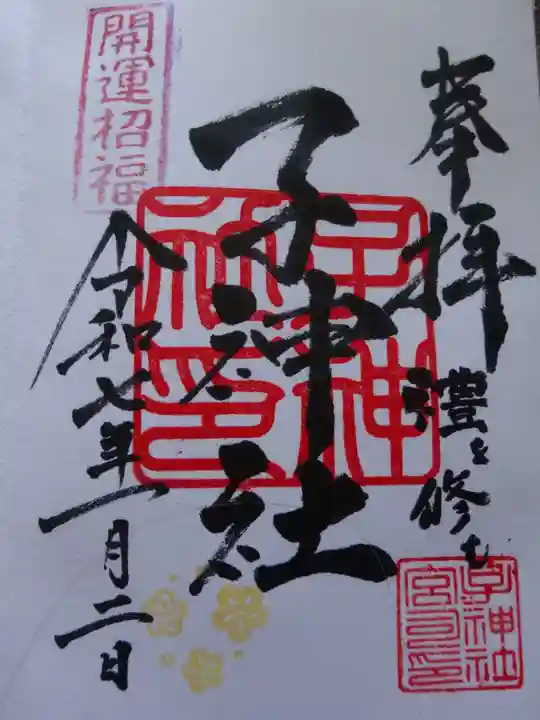 奉拝
禮を修む
子神社
開運招福
令和七年一月二日
子神社印
子神社
宮司印